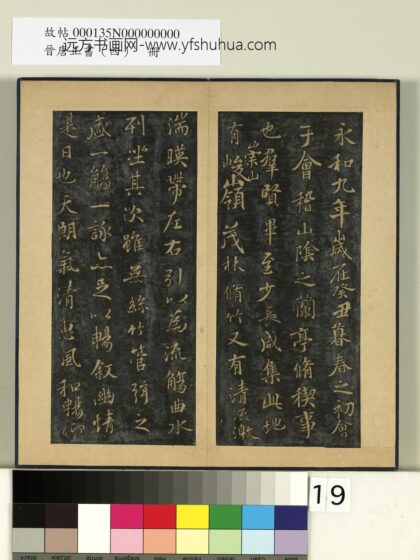 故帖 000135N000000000
远方书画网-www.yfshuhua.com
晉唐正書（四） 冊
永和九年歲在癸丑暮春之初會
于會稽山陰之蘭亭脩稧事
也羣賢畢至少長咸集此地
有崇山峻領茂林脩竹又有清流激
湍暎帶左右引以為流觴曲水
列坐其次雖無絲竹管弦之
盛一觴一詠亦足以暢敘幽情
是日也天朗氣清惠風和暢仰
19